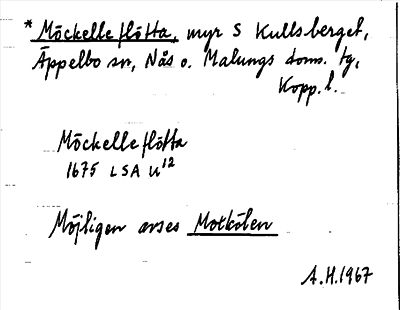 * Möckelleflötta, myr S Kullsberget,
Äppelbo sn, Nås o. Malungs doms. tg,
Kopp. l.
Möckelleflötta
1675 LSA U12
Möjligen avses Motkölen
A.H. 1967